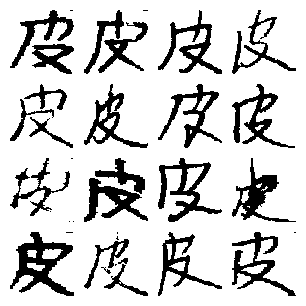 皮皮皮皮
皮皮皮皮
皮皮皮皮
皮皮皮皮